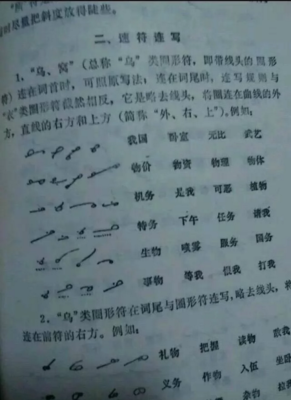 时尽量把斜度放得徒些。
二、速符连写
1、“乌、窝”（总称“乌”类图形符，即带线头的图形
符）连在词首时，可照原写法；连在词尾时，连写规则与
“衣”类图形符截然相反，它是略去线头，将圈连在曲线的外
方，直线的右方和上方（简称“外、右、上”）。例如，
我国 卧室 无比 武艺
物价 物资 物理 物体
机务 是我 可恶 植物
特务 下午 任务 请我
生物 喷雾 服务 国务
事物 等我 但我 打我
2、“乌”类图形符在词尾与图形符连写，略去线头，将
连在前符的右方。例如：
礼物 把握 读物 歌
义务 作物 人伍 坐卧
杂物